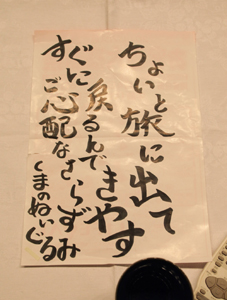 ちょいと旅に出て
きやす
すぐに戻るんで
ご心配なさらずみ
くまのぬいぐるみ